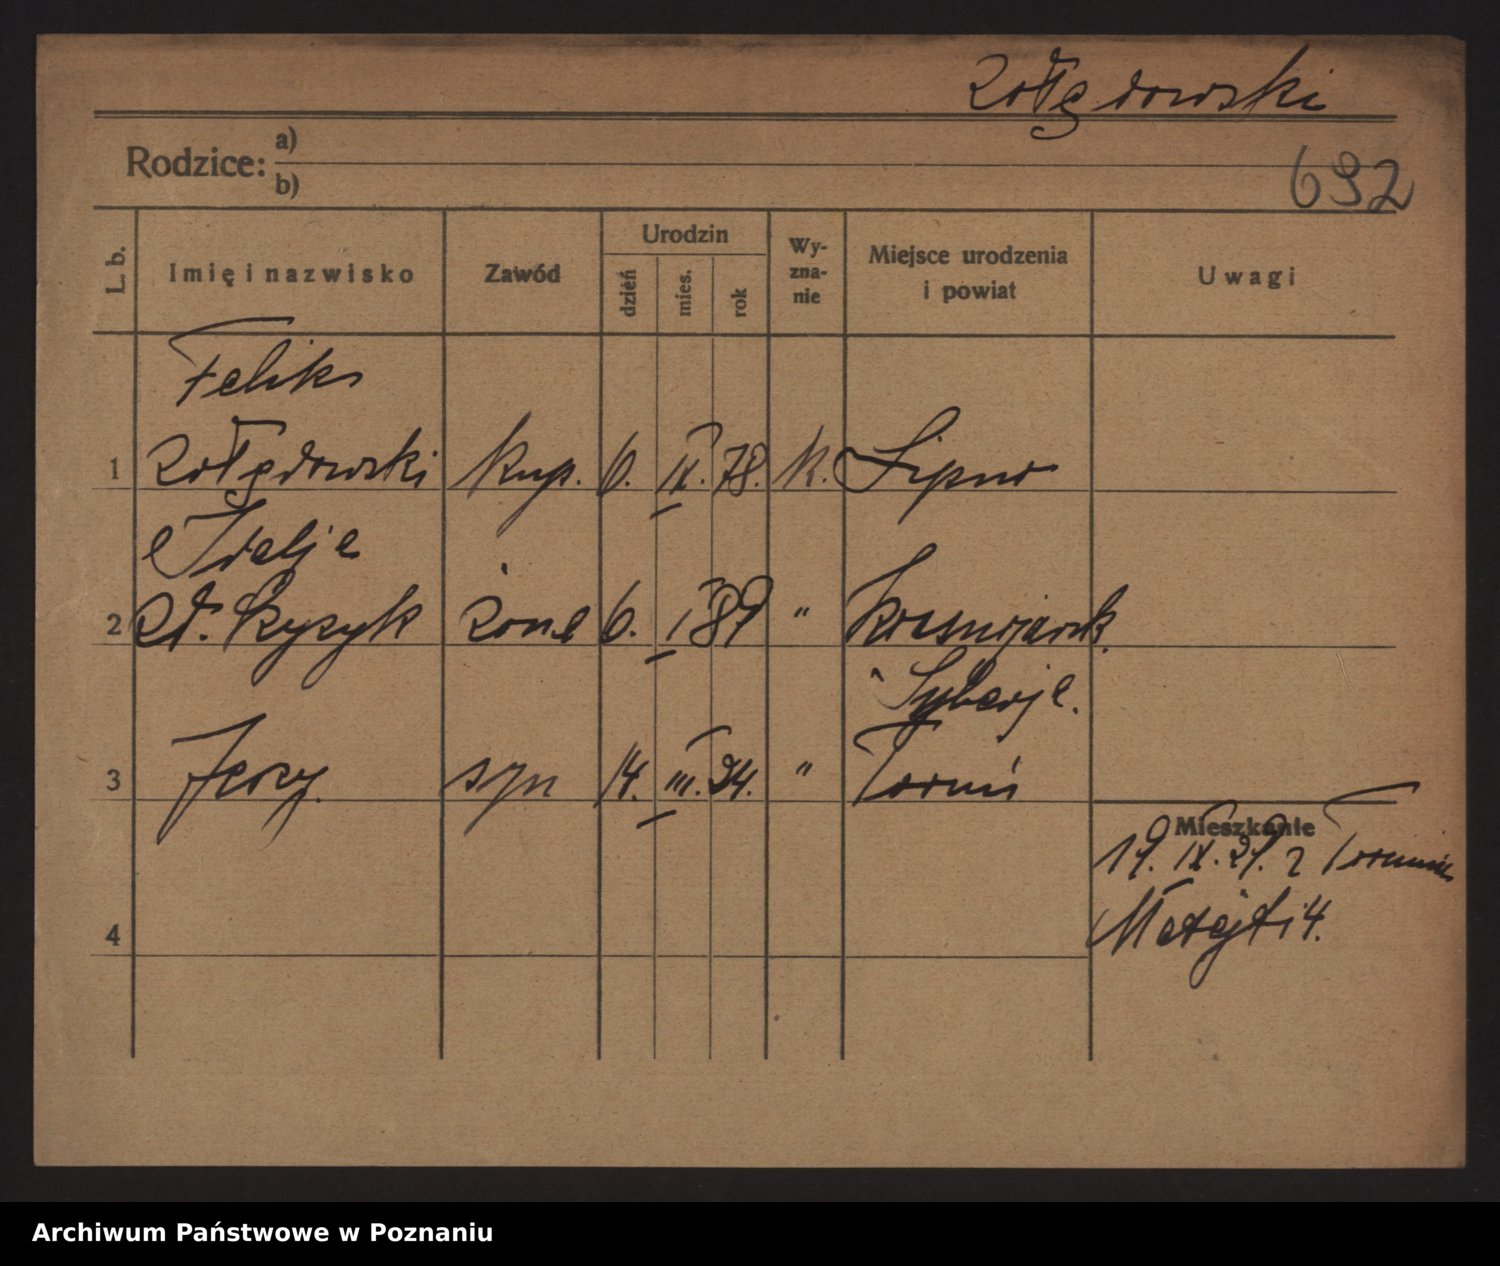 Żołędowski
Rodzice: a)
b)
692
L. b.
Imię i nazwisko
Zawód
Urodzin
dzień
mies.
rok
Wy-
zna-
nie
Miejsce urodzenia
i powiat
Uwagi
Feliks
1 Żołędowski kup. 6. IV. 78. k. Lipno
Idalja
2 zd. Ryzyk żona 6. I 89 " Krasnojarsk.
Syberja.
3 Jerzy syn 14. III. 24. " Toruń
Mieszkanie
19. IX. 29. z Torunia
Matejki 4.
4
Archiwum Państwowe w Poznaniu